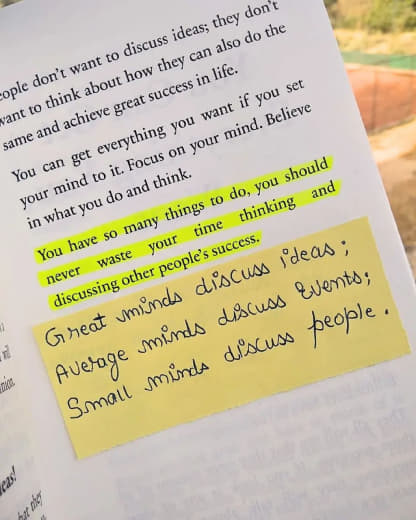 people don't want to discuss ideas; they don't
want to think about how they can also do the
same and achieve great success in life.
You can get everything you want if you set
your mind to it. Focus on your mind. Believe
in what you do and think.
You have so many things to do, you should
never waste your time thinking and
discussing other people's success.
Great minds discuss ideas;
Average minds discuss Events;
Small minds discuss people.